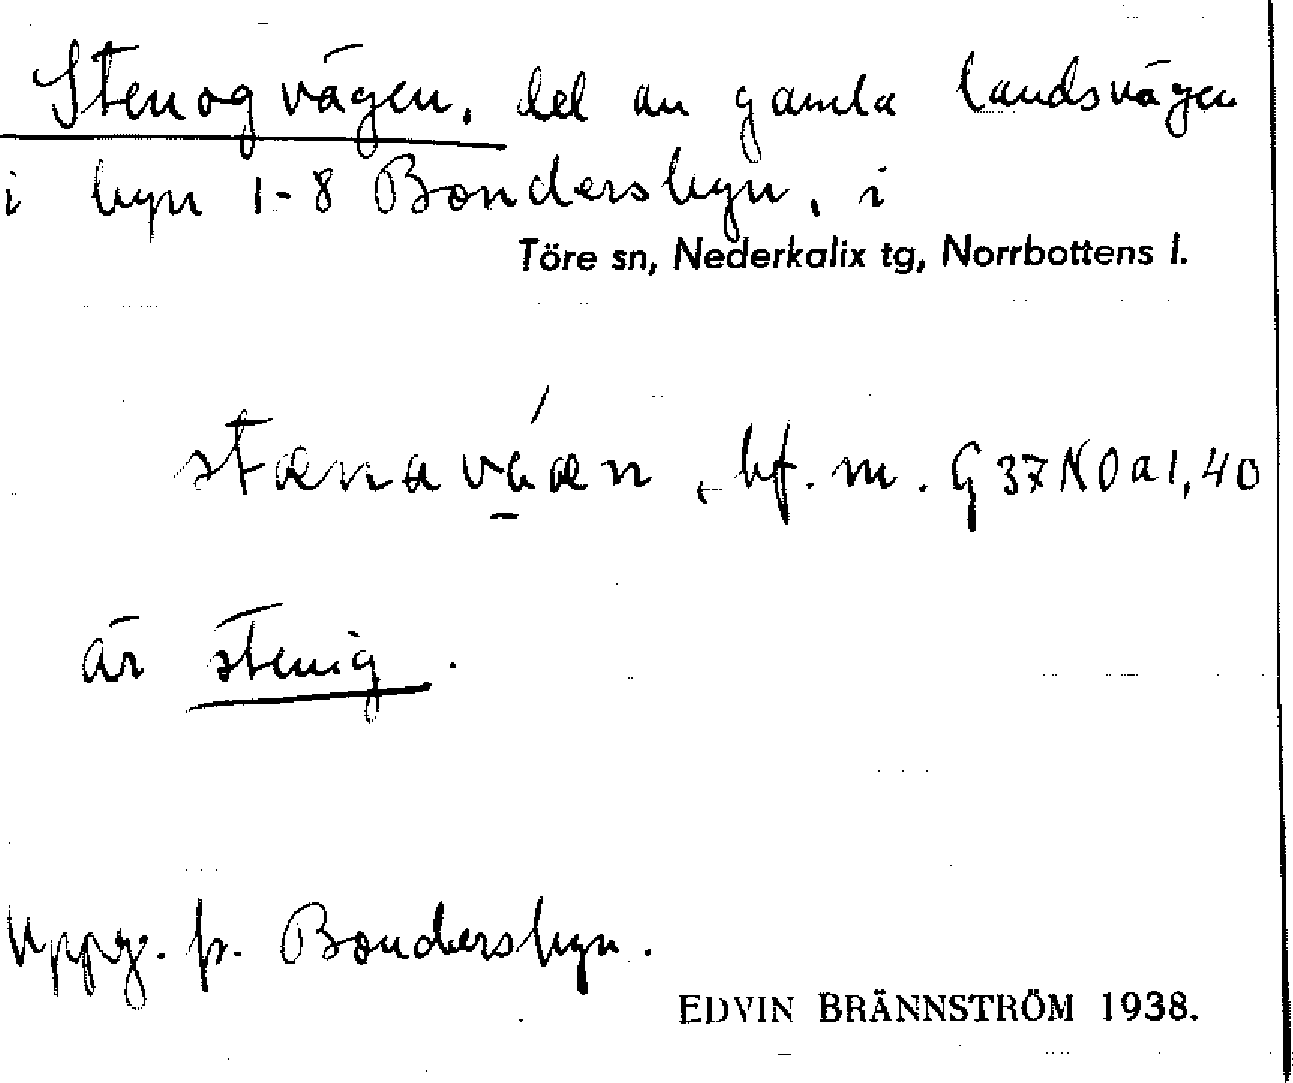 Stenog vägen, del av gamla landsvägen
i byn 1-8 Bondersbyn, i
Töre sn, Nederkalix tg, Norrbottens l.
stænavéæn, bf. m. G 37 NO a 1, 40
är stenig.
Uppg. fr. Bondersbyn.
EDVIN BRÄNNSTRÖM 1938.